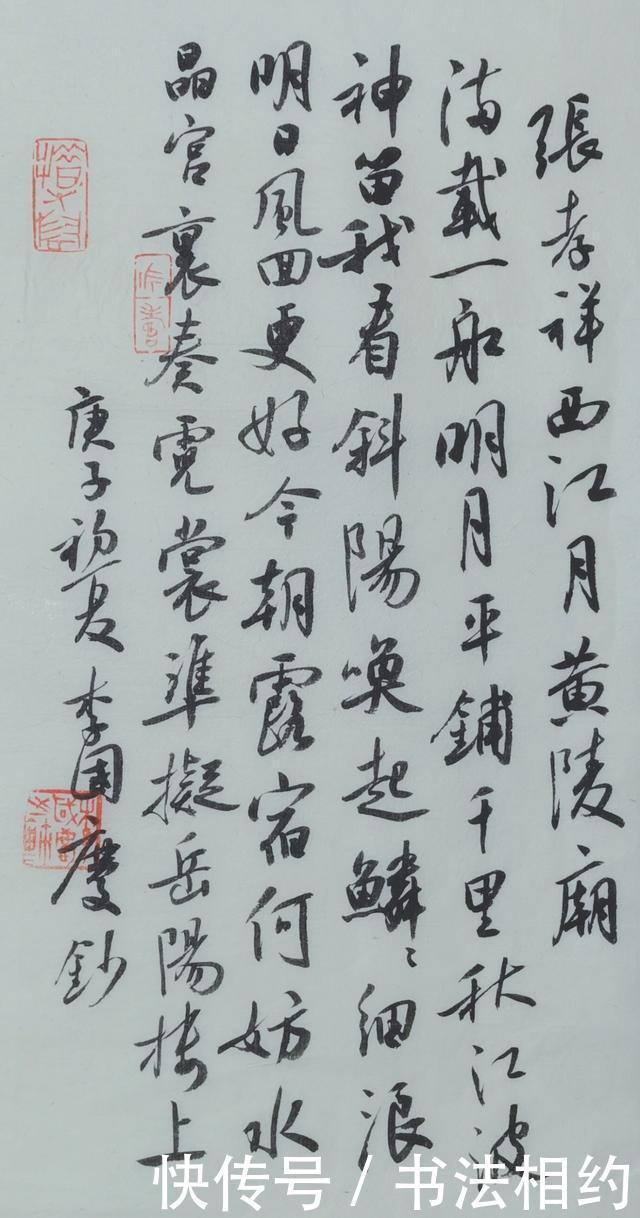 張孝祥西江月黄陵廟
满載一船明月平鋪千里秋江波
神留我看斜陽喚起鱗〻细浪
明日風回更好今朝露宿何妨水
晶宫裏奏霓裳準擬岳陽楼上
庚子初夏李国慶鈔
快传号/书法相约